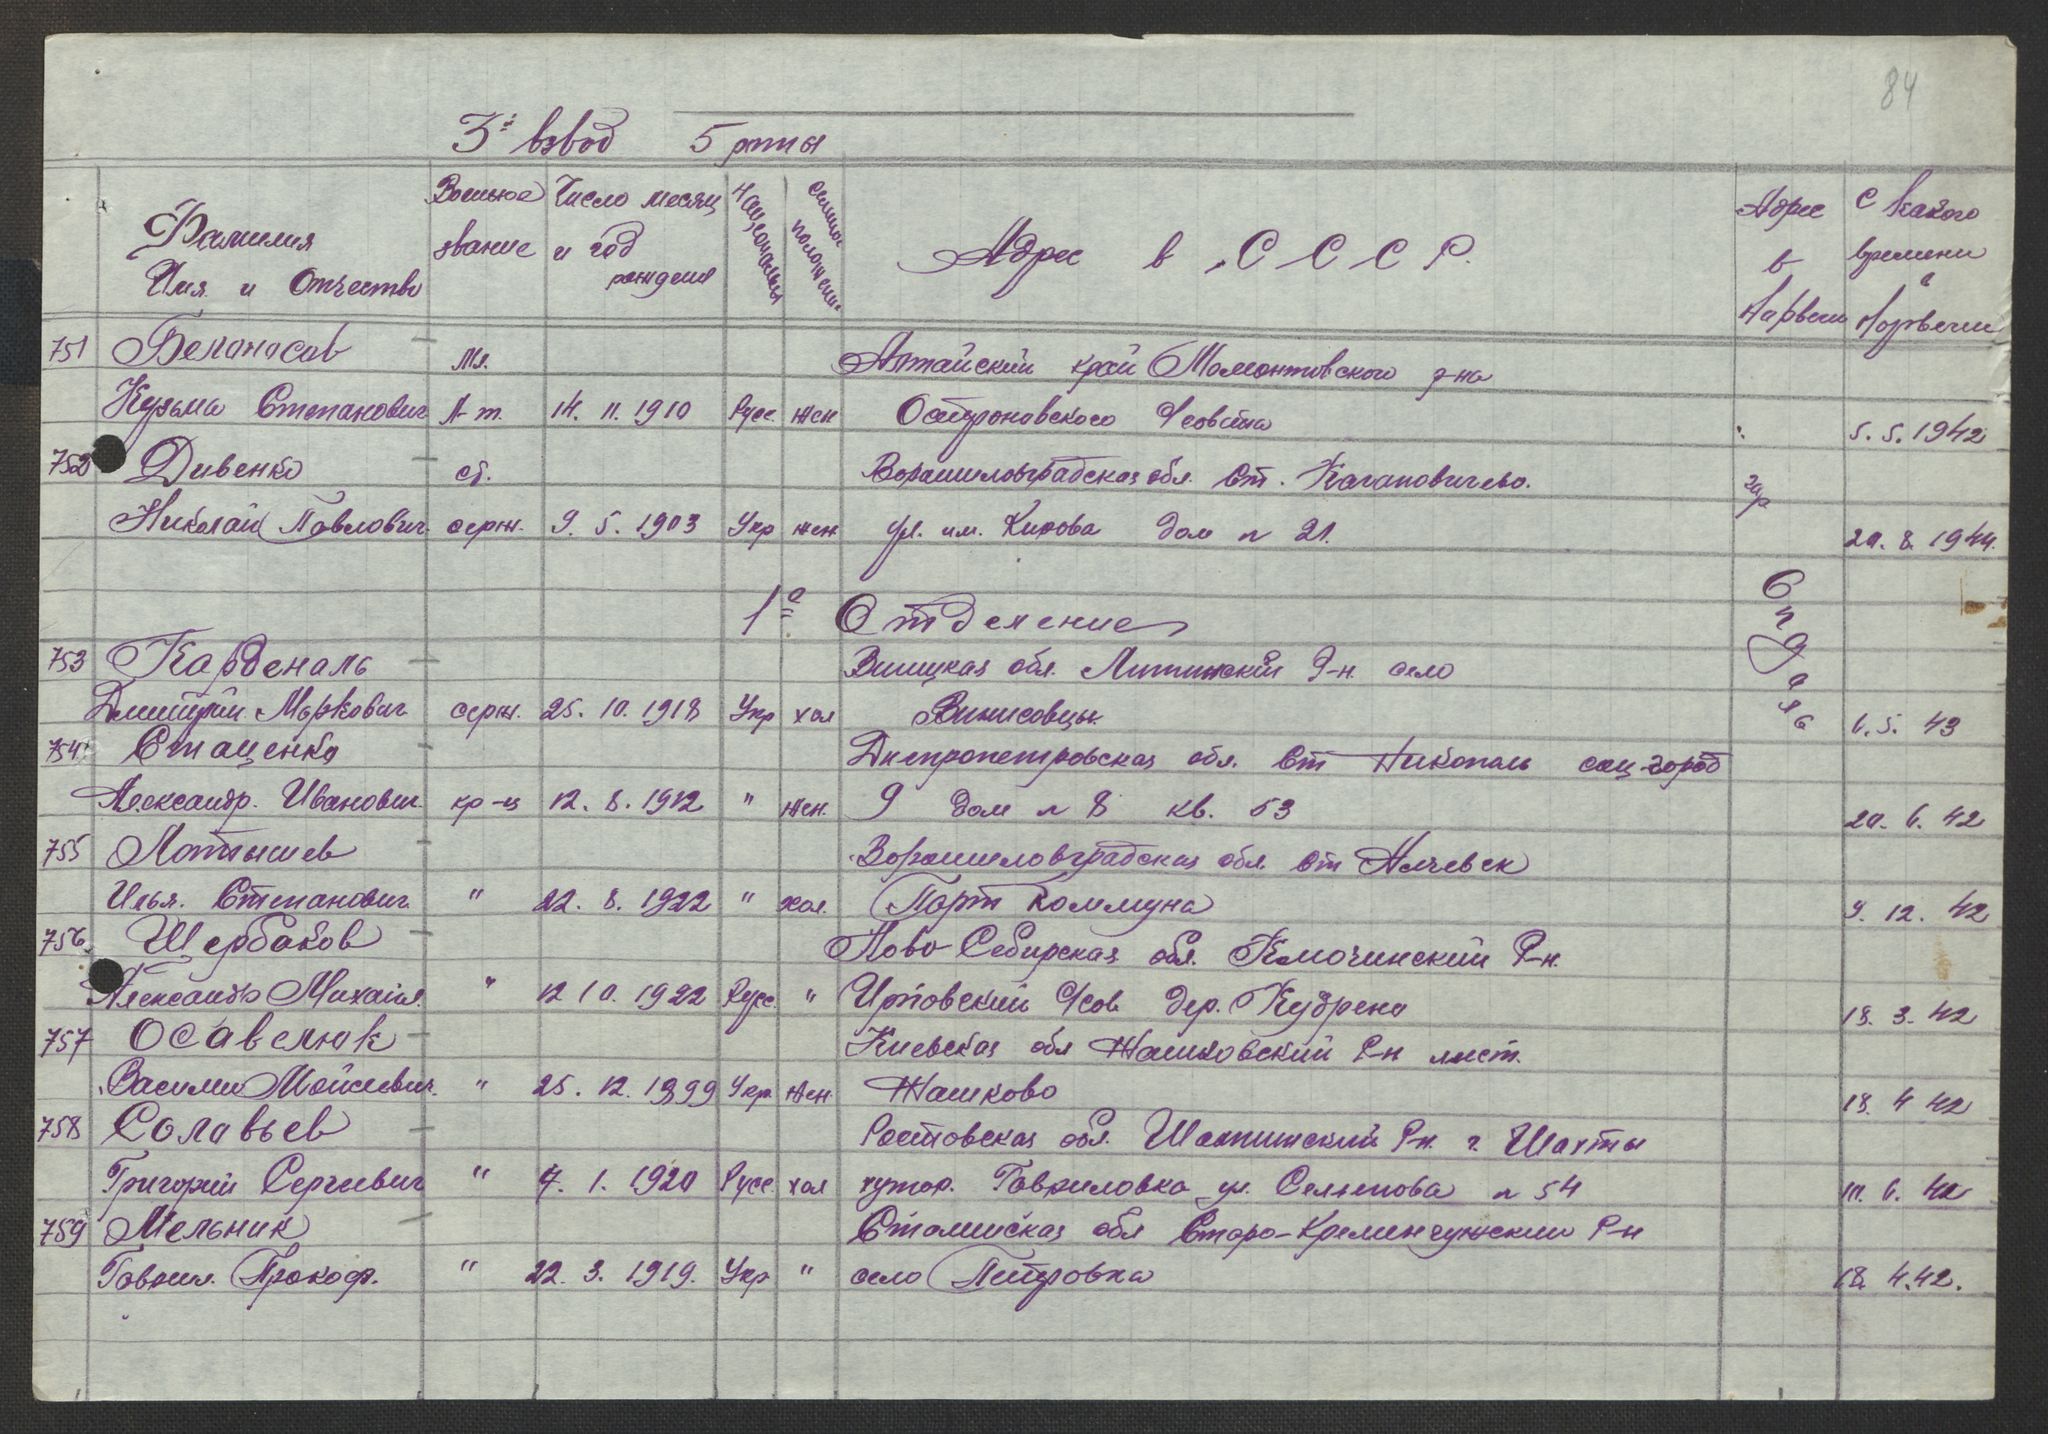 84
3й взвод 5 роты
Фамилия Имя и Отчество
Военное звание
Число месяц и год рождения
Национальн
Семейное положение
Адрес в С С С Р.
Адрес в Норвегии
С какого времени в Норвегии
751 Белоносов мл. Алтайский край Мамонтовского р-на
Кузьма Степанович л-т. 14. 11. 1910 Русс. жен Островновского с/совета 5. 5. 1942
752 Дивенко ст. Ворошиловградская обл. ст. Кагановичево.
Николай Павлович серж. 9. 5. 1903 Укр жен ул. им. Кирова дом № 21. 20. 8. 1944.
гор Опдаль
1е Отделение
753 Кардональ Виницкая обл. Литинский Р-н. село
Дмитрий Маркович серж. 25. 10. 1918 Укр хол 6. 5. 43
754 Стаценко Днепропетровская обл. ст Никополь соц-город
Александр. Иванович кр-ц 12. 8. 1912 " жен. 9 дом № 8 кв. 53 20. 6. 42
755 Латышев Ворошиловградская обл. ст Алчевск
Илья. Степанович " 22. 8. 1922 " хол. Парт Коммуна 9. 12. 42
756 Щербаков Ново Себирская обл. Р-н.
Александр Михаил. " 12 10. 1922 Русс. " с/сов дер. 18. 3. 42
757 Осавелюк Киевская обл Жашковский Р-н мест.
Васили Мойсеевич " 25. 12. 1899 Укр. жен. Жашково 18. 4 42
758 Солавьев Ростовская обл. Шахтинский Р-н. г. Шахты
Григорий Сергеевич " 7. 1. 1920 Русс. хол хутор. Гавриловка ул. № 54 10. 6. 42
759 Мельник обл Старо-Кременчужский Р-н
Гаврил. Прокоф. " 22. 3. 1919. Укр " село Петровка 18. 4. 42.